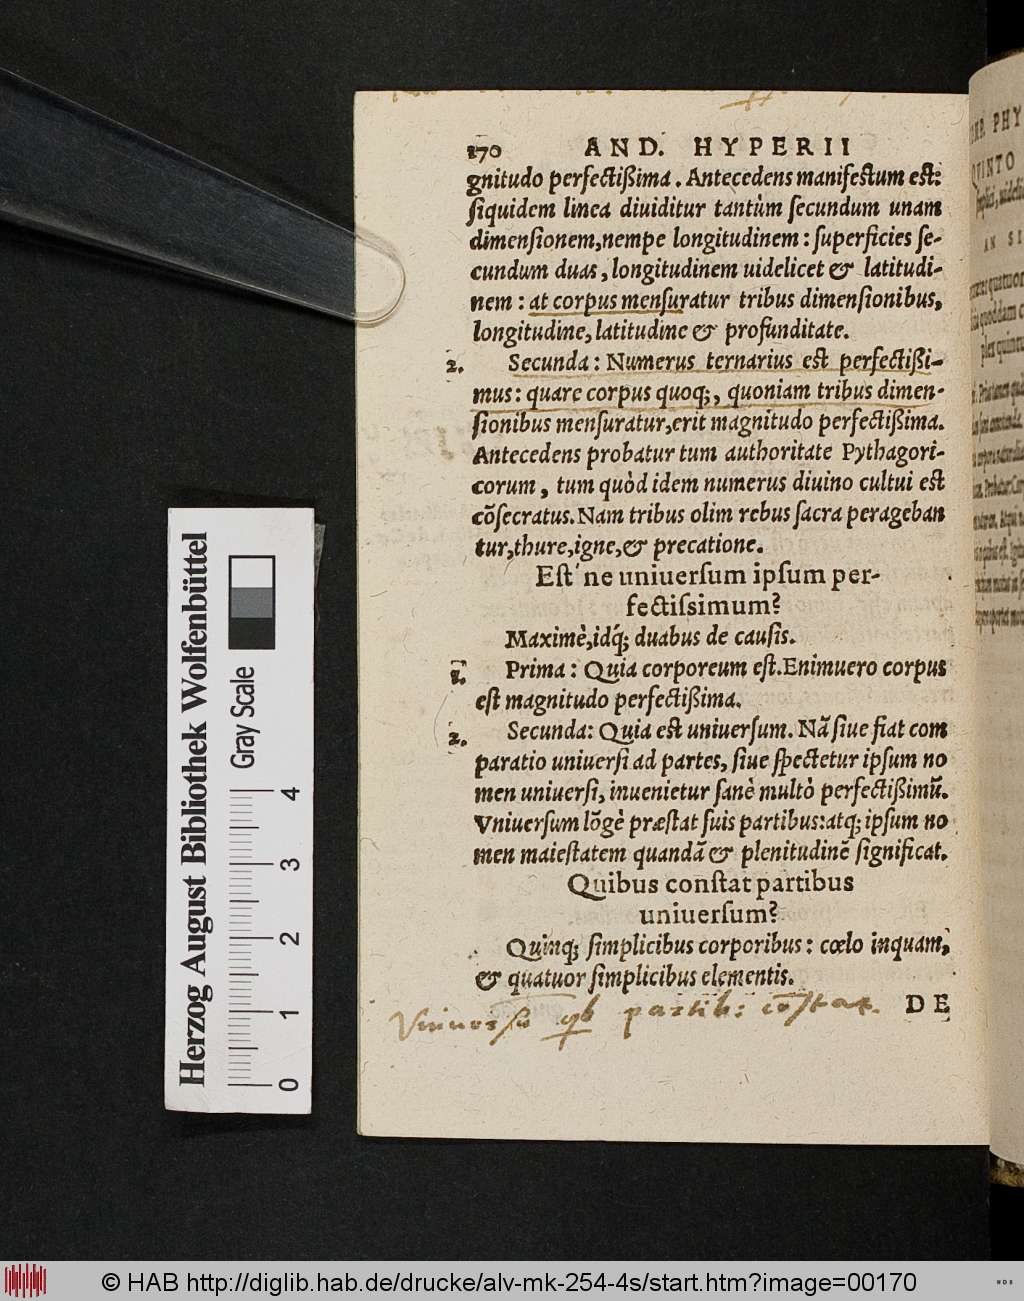 170 AND. HYPERII
gnitudo perfectißima. Antecedens manifestum est:
siquidem linea diuiditur tantùm secundum unam
dimensionem, nempe longitudinem: superficies se-
cundum duas, longitudinem uidelicet & latitudi-
nem: at corpus mensuratur tribus dimensionibus,
longitudine, latitudine & profunditate.
2. Secunda: Numerus ternarius est perfectißi-
mus: quare corpus quoq;, quoniam tribus dimen-
sionibus mensuratur, erit magnitudo perfectißima.
Antecedens probatur tum authoritate Pythagori-
corum, tum quòd idem numerus diuino cultui est
cõsecratus. Nam tribus olim rebus sacra perageban
tur, thure, igne, & precatione.
Est' ne uniuersum ipsum per-
fectissimum?
Maximè, idq́; duabus de causis.
1. Prima: Quia corporeum est. Enimuero corpus
est magnitudo perfectißima.
2. Secunda: Quia est uniuersum. Nã siue fiat com
paratio uniuersi ad partes, siue spectetur ipsum no
men uniuersi, inuenietur sanè multò perfectißimũ.
Vniuersum lõgè præstat suis partibus: atq; ipsum no
men maiestatem quandã & plenitudinẽ significat.
Quibus constat partibus
uniuersum?
Quinq; simplicibus corporibus: cœlo inquam,
& quatuor simplicibus elementis.
DE
partib: cõstat.
Herzog August Bibliothek Wolfenbüttel
Gray Scale
0 1 2 3 4
© HAB http://diglib.hab.de/drucke/alv-mk-254-4s/start.htm?image=00170